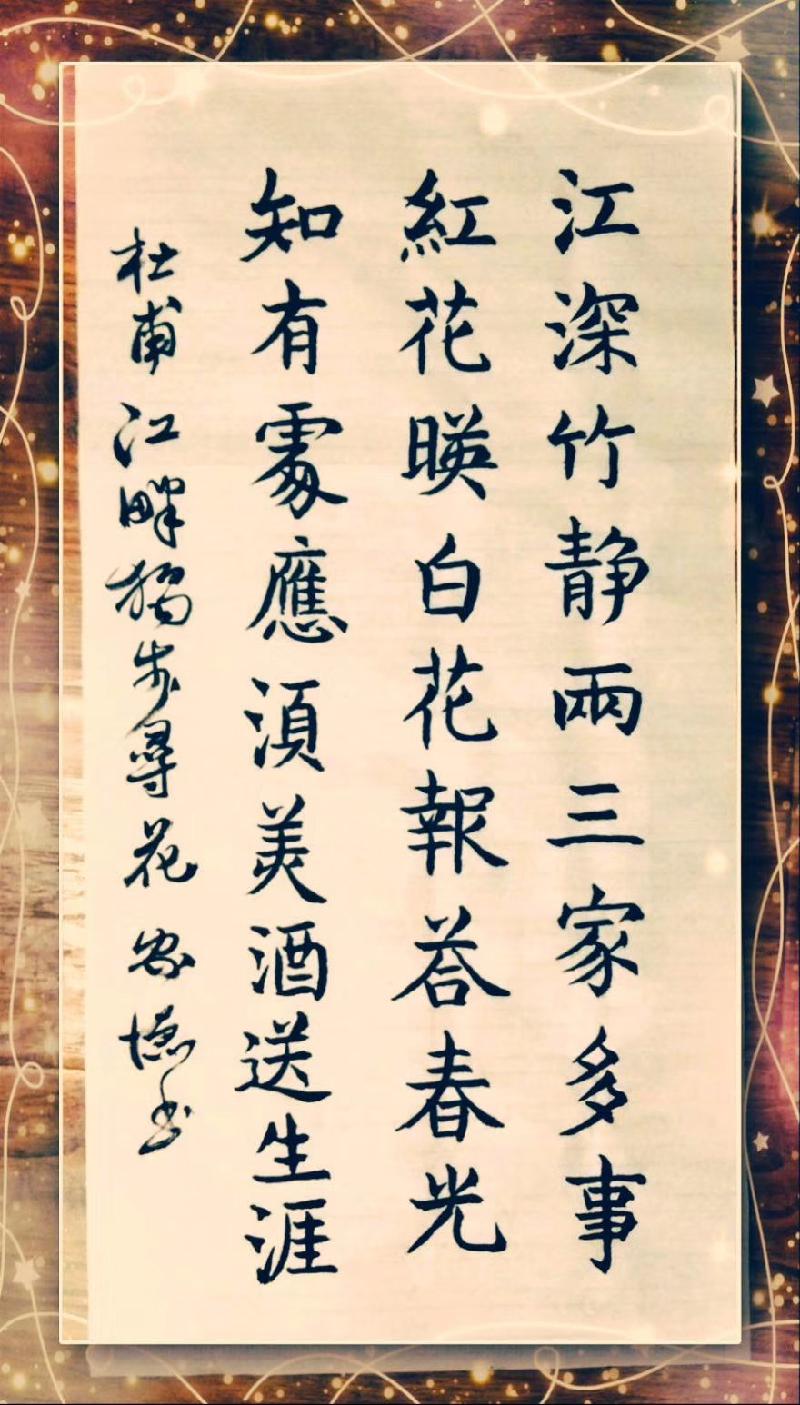 江深竹静兩三家多事
紅花暎白花報荅春光
知有處應須美酒送生涯
杜甫江畔獨步尋花